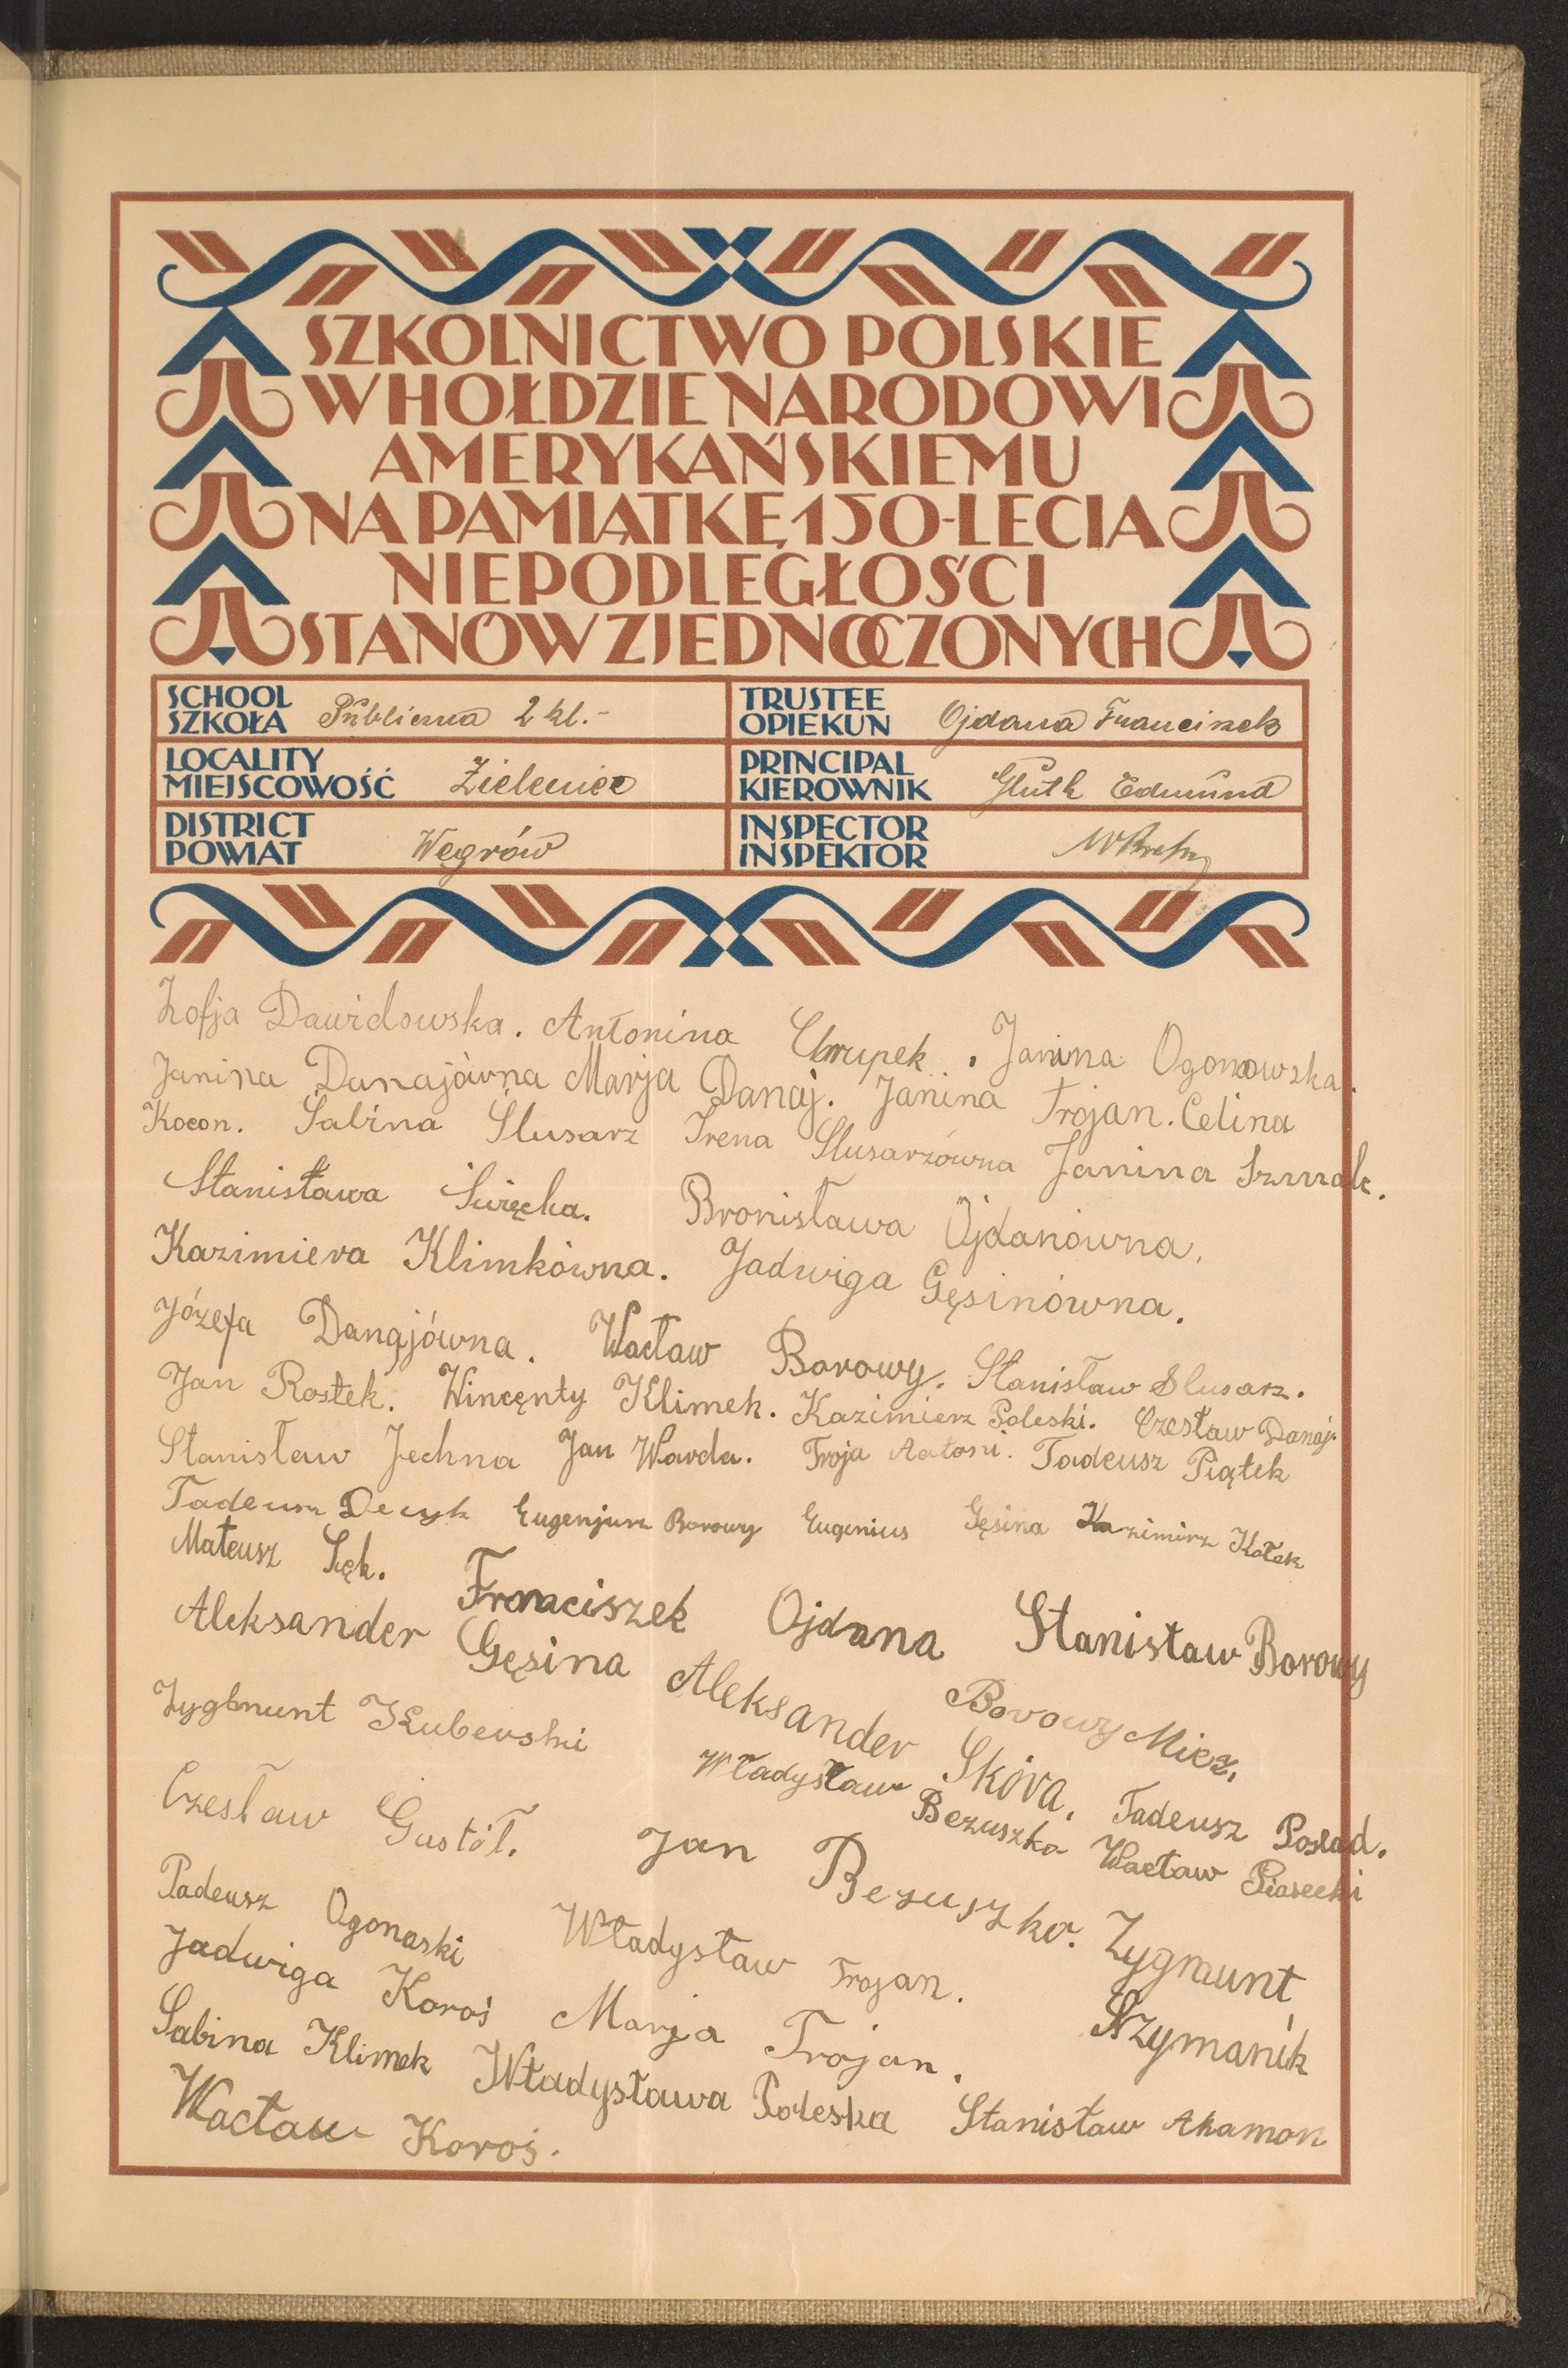 SZKOLNICTWO POLSKIE
W HOŁDZIE NARODOWI
AMERYKAŃSKIEMU
NA PAMIĄTKĘ 150-LECIA
NIEPODLEGŁOŚCI
STANÓW ZJEDNOCZONYCH
SCHOOL
SZKOŁA Publiczna 2 kl.-
TRUSTEE
OPIEKUN Ojdana Franciszek
LOCALITY
MIEJSCOWOŚĆ Zieleniec
PRINCIPAL
KIEROWNIK Gluth Edmund
DISTRICT
POWIAT Węgrów
INSPECTOR
INSPEKTOR
Zofja Dawidowska. Antonina Chrupek. Janina Ogonowska.
Janina Danajówna Marja Danaj. Janina Trojan. Celina
Kocon. Sabina Ślusarz Irena Slusarzówna Janina Szmak.
Stanisława Święcka. Bronisława Ojdanówna.
Kazimiera Klimkówna. Jadwiga Gęsinówna.
Józefa Danajówna. Wacław Borowy. Stanisław Slusarz.
Jan Rostek. Wincęnty Klimek. Kazimierz Poleski. Czesław Danaj.
Stanisław Jechna Jan Warda. Troja Antoni. Tadeusz Piątek
Tadeusz Decyk Eugenjusz Borowy Eugenius Gęsina Kazimirz Kotek
Mateusz Sęk. Franciszek Ojdana Stanisław Borowy
Aleksander Gęsina Aleksander Skóra. Borowy Miecz.
Zygbmunt Kuberski Władysław Bezuszka Tadeusz Posiad.
Czesław Gustół. Jan Bezuszko. Wacław Piasecki
Tadeusz Ogonoski Władysław Trojan. Zygmunt
Szymanik
Jadwiga Koroś Marja Trojan.
Sabina Klimek Władysława Poleska Stanisław Akamon
Wacław Koroś.